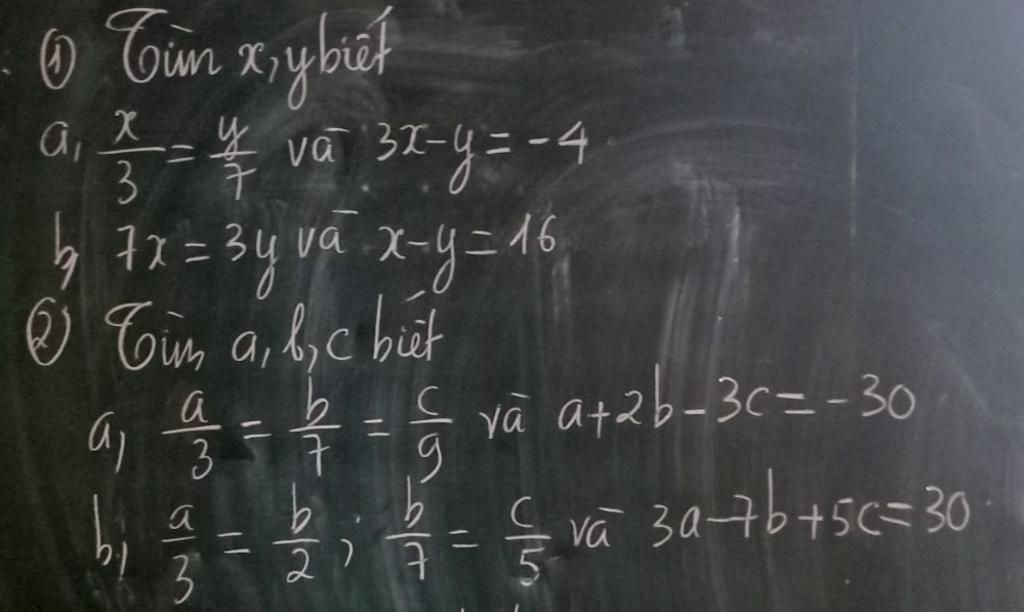 ① Tìm x, y biết
a, x/3 = y/7 và 3x-y = -4
b, 7x = 3y và x-y = 16
② Tìm a, b, c biết
a, a/3 = b/7 = c/9 và a+2b-3c = -30
b, a/3 = b/2; b/7 = c/5 và 3a-7b+5c = 30